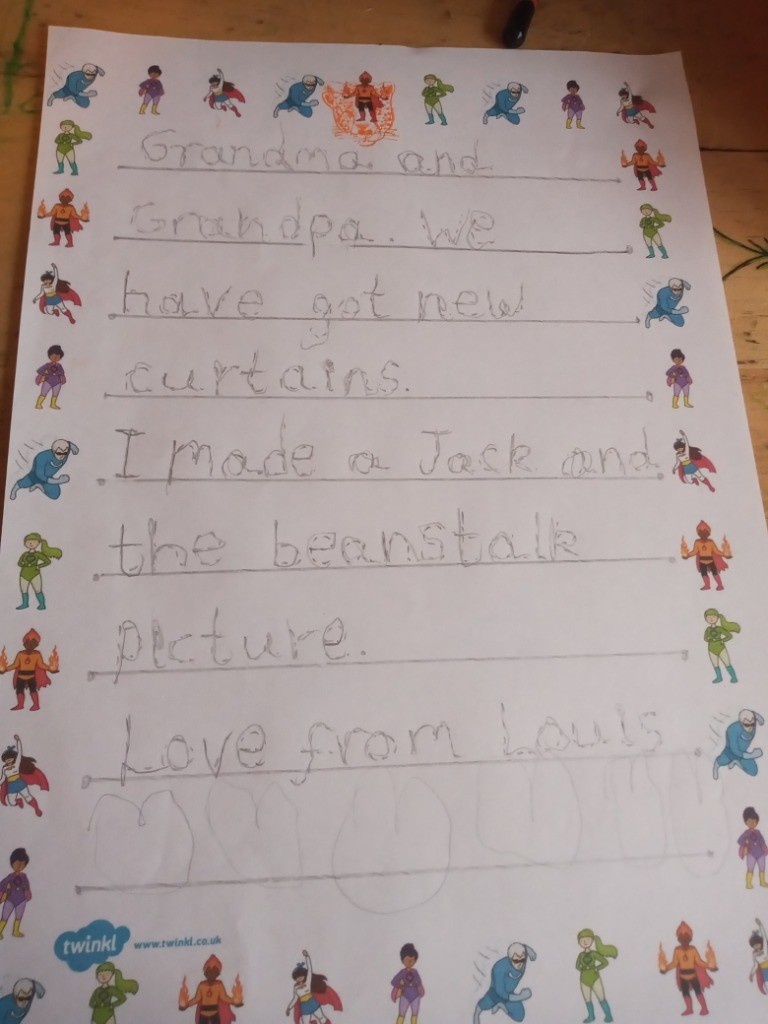 Grandma and
Grandpa. We
have got new
curtains.
I made a Jack and
the beanstalk
picture.
Love from Louis
twinkl www.twinkl.co.uk